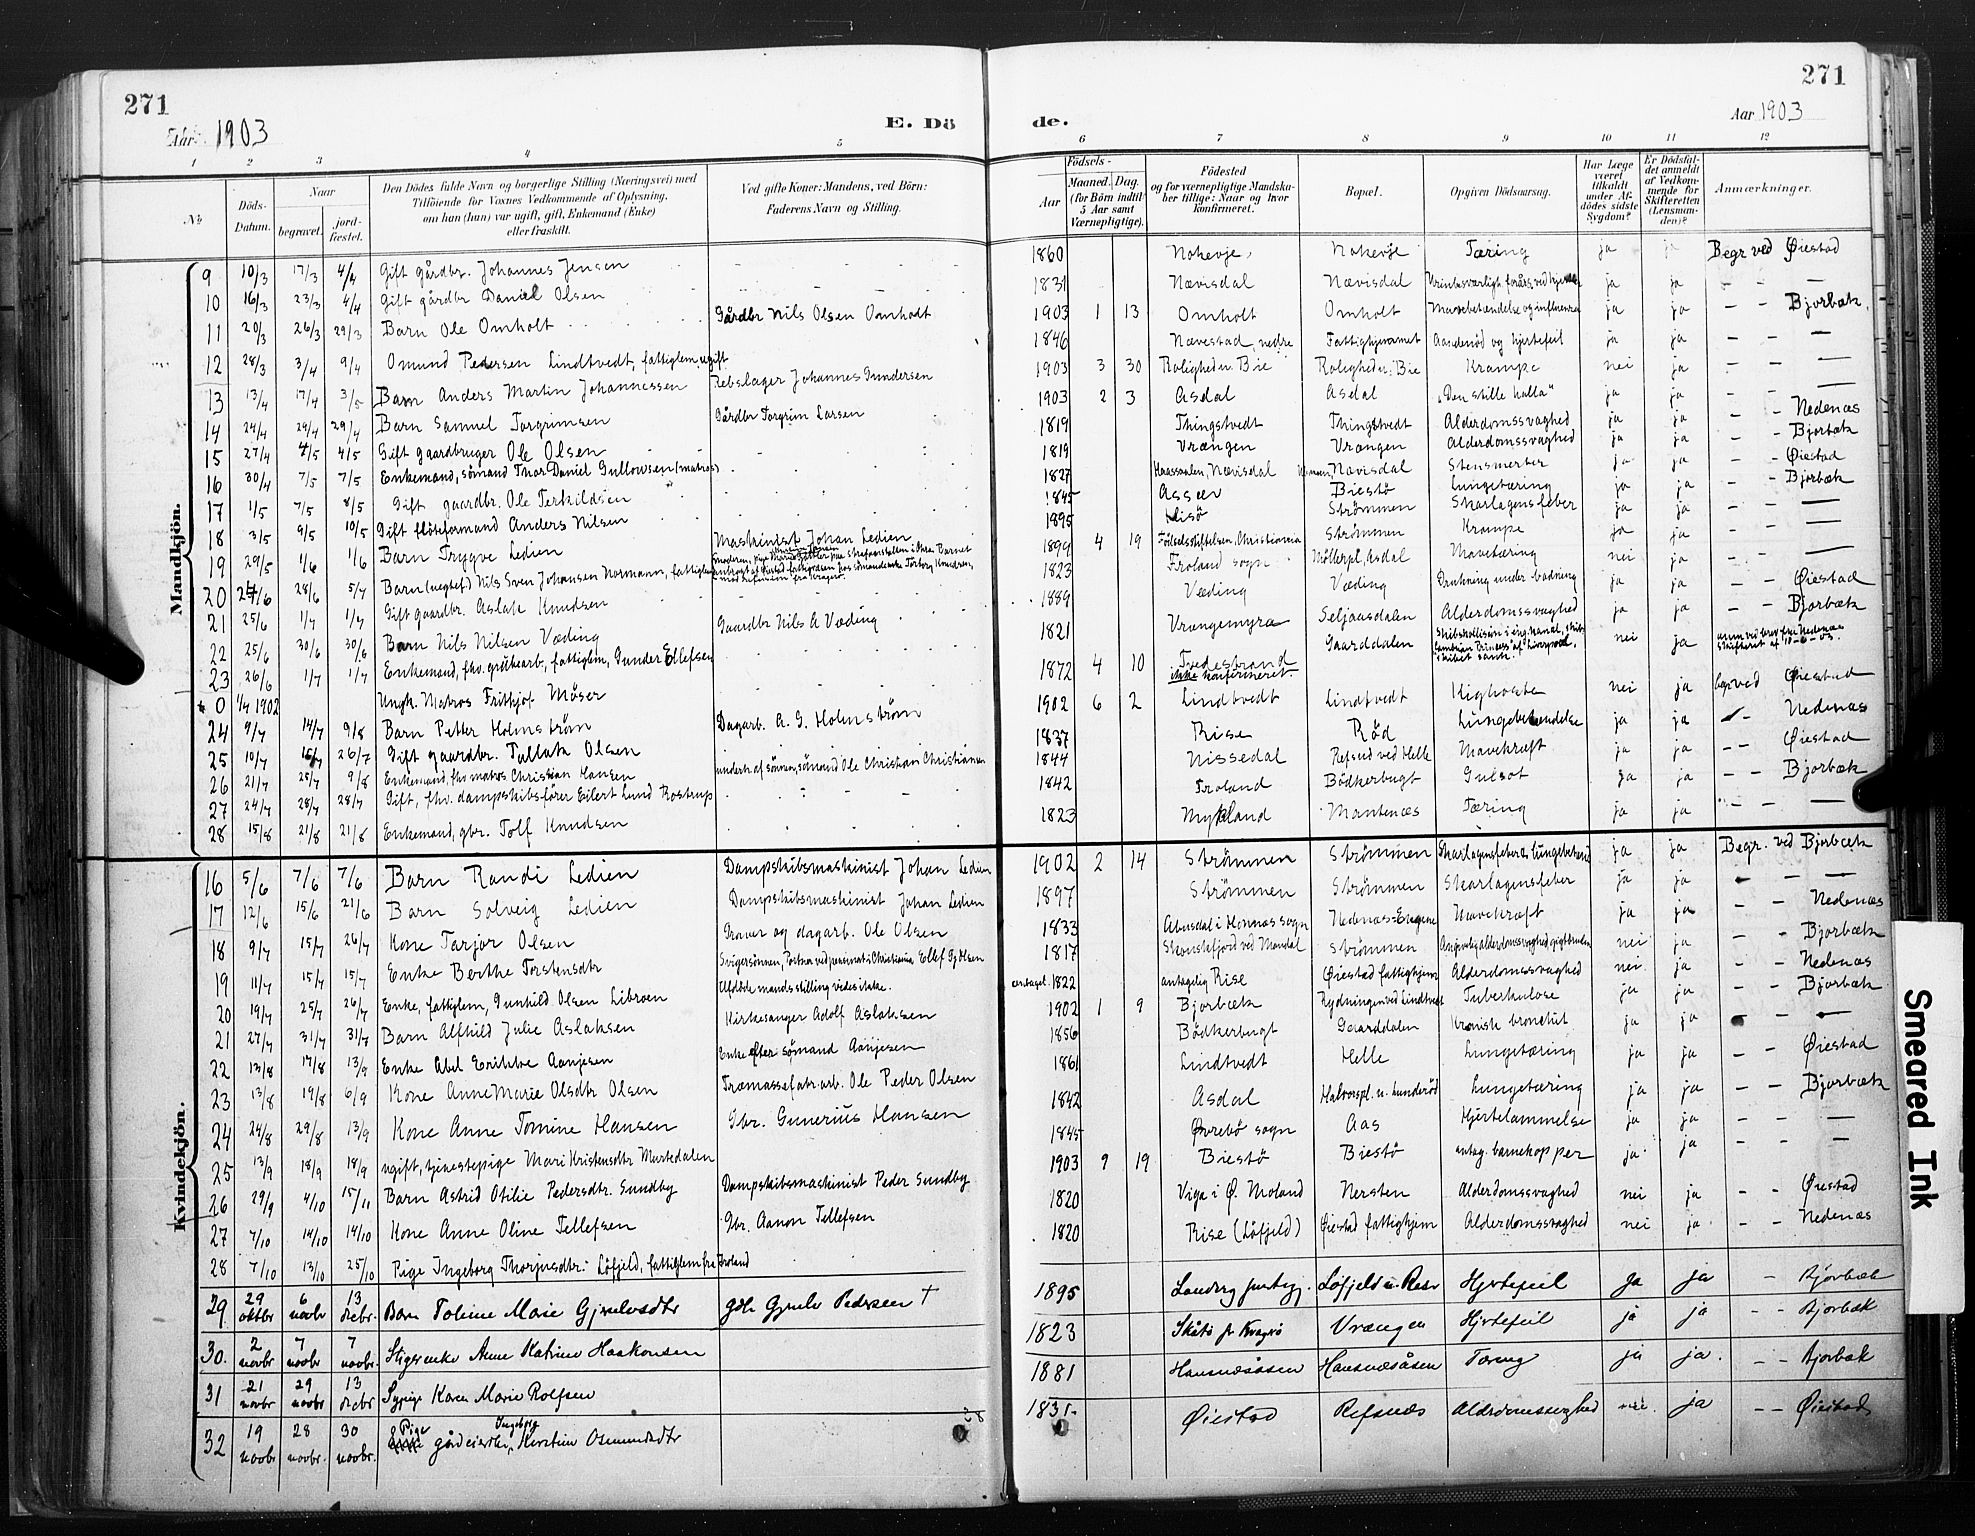 271
271
Aar 1903
E. Dö
de.
Aar 1903
1 2 3 4 5 6 7 8 9 10 11 12
№
Döds-Datum.
Naar
begravet.
jord-fæstet.
Den Dödes fulde Navn og borgerlige Stilling (Næringsvei) med
Tilföiende for Voxnes Vedkommende af Oplysning,
om han (hun) var ugift, gift, Enkemand (Enke)
eller fraskilt.
Ved gifte Koner: Mandens, ved Börn:
Faderens Navn og Stilling.
Födsels-
Aar
Maaned. Dag.
(for Börn indtil
5 Aar samt
Værnepligtige).
Födested
og for værnepligtige Mandska-
ber tillige: Naar og hvor
konfirmeret.
Bopæl.
Opgiven Dödsaarsag.
Har Læge
været
tilkaldt
under Af-
dödes sidste
Sygdom?
Er Dödsfal-
det anmeldt
af Vedkom-
mende for
Skifteretten
(Lensman-
den)?
Anmærkninger.
Mandkjön.
9 10/3 17/3 4/4 Gift gårdbr. Johannes Jensen 1860 Nokevje Nokevje Tæring ja ja Begr ved Øiestad
10 16/3 23/3 4/4 Gift gårdbr Daniel Olsen 1831 Nævisdal Nævisdal ja ja — —
11 20/3 26/3 29/3 Barn Ole Omholt Gårdbr Nils Olsen Omholt 1903 1 13 Omholt Omholt Mavebetændelse og influenza ja ja — — Bjorbæk
12 28/3 3/4 9/4 Omund Pedersen Lindtvedt, fattiglem, ugift 1846 Nævestad, nedre Fattighjemmet Aandenød og hjertefeil ja ja — —
13 13/4 17/4 3/5 Barn Anders Martin Johannessen Rebslager Johannes Gundersen 1903 3 30 Roligheden Bie Roligheden, Bie Krampe nei ja — —
14 24/4 29/4 29/4 Barn Samuel Torgrimsen Gårdbr Torgrim Larsen 1903 2 3 Asdal Asdal "Den stille halla" ja ja — —
15 27/4 4/5 4/5 Gift gaardbruger Ole Olsen 1819 Thingstvedt Thingstvedt Alderdomssvaghed ja ja — Nedenæs
16 30/4 7/5 7/5 Enkemand, sömand Thor Daniel Gullowsen (matros) 1819 Vrængen Vrængen Alderdomssvaghed ja ja — Bjorbæk
17 1/5 7/5 8/5 Gift gaardbr. Ole Terkildsen 1827 Nævisdal Nævisdal Stensmerter ja ja — Øiestad
18 3/5 9/5 10/5 Gift flöteformand Anders Nilsen 1845 Assær Biestö Lungetæring ja ja — Bjorbæk
19 29/5 1/6 1/6 Barn Trygve Ledien Maskinist Johan Ledien 1895 Risö Strømmen Skarlagensfeber ja ja — —
20 24/6 28/6 5/7 Barn (uegtef) Nils Sven Johansen Normann, fattiglem 1899 4 19 Födselsstiftelsen, Christiania Strømmen Krampe ja ja — —
21 25/6 1/7 1/7 Gift gaardbr. Aslak Knudsen 1823 Froland sogn Möllerpl. Asdal Mavetæring nei ja — —
22 25/6 30/6 30/6 Barn Nils Nilsen Væding Gaardbr Nils A Væding 1889 Væding Væding Drukning under badning ja ja — — Øiestad
23 26/6 1/7 1/7 Enkemand, fhv. grubearb, fattiglem, Gunder Ellefsen 1821 Vrangemyra Seljaasdalen Alderdomssvaghed ja ja — — Bjorbæk
0 1/4 1902 Ungk. Matros Frithjof Möser 1872 4 10 Tvedestrand ikke konfirmeret. Gaarddalen Skibskollision i eng. kanal, skib "Cambrian Princess" af Liverpool, skibet sank. nei ja anm ved brev fra Nedenæs skifteret af 10-6-03.
24 9/7 14/7 9/8 Barn Petter Holmström Dagarb. A. G. Holmström 1902 6 2 Lindtvedt Lindtvedt Kighoste nei ja begr ved Øiestad
25 10/7 15/7 26/7 Gift gaardbr. Tallak Olsen 1837 Rise Röd Lungebetændelse ja ja — Nedenæs
26 21/7 25/7 9/8 Enkemand, fhv matros Christian Hansen underh. af sönnen, sömand Ole Christian Christiansen 1844 Nissedal Refsnd ved Helle Mavekræft ja ja — — Øiestad
27 24/7 28/7 28/7 Gift, fhv. dampskibsförer Eilert Lund Rostrup 1842 Froland Bödkerbugt Gulsot ja ja — — Bjorbæk
28 15/8 21/8 21/8 Enkemand, gbr. Tolf Knudsen 1823 Mykland Mantenæs Tæring ja ja — —
Kvindekjön.
16 5/6 7/6 7/6 Barn Randi Ledien Dampskibsmaskinist Johan Ledien 1902 2 14 Strömmen Strömmen ja ja Begr. ved Bjorbæk
17 12/6 15/6 21/6 Barn Solveig Ledien Dampskibsmaskinist Johan Ledien 1897 Strömmen Strömmen Skarlagensfeber ja ja — —
18 9/7 15/7 26/7 Kone Tarjor Olsen Graver og dagarb. Ole Olsen 1833 Nedenæs-Engene Mavekræft ja ja — — Nedenæs
19 11/7 15/7 15/7 Enke Berthe Torstensdtr 1817 ved Mandal Strömmen nei ja — — Bjorbæk
20 19/7 25/7 26/7 Enke, fattiglem, Gunhild Olsen Libroen Afdöde mands stilling vides ikke. antaget. 1822 antagelig Rise Øiestad fattighjem Alderdomssvaghed nei ja — — Nedenæs
21 27/7 31/7 31/7 Barn Alfhild Julie Aslaksen Kirkesanger Adolf Aslaksen 1902 1 9 Bjorbæk Rydningen ved Lindtvedt Tuberkulose ja ja — — Bjorbæk
22 13/8 17/8 13/9 Enke Abel Erikke Aanjesen Enke efter sömand Aanjesen 1856 Bödkerbugt Gaarddalen Kronisk bronchit ja ja — —
23 13/8 19/8 6/9 Kone Anne Marie Olsdtr Olsen Træmassefabr.arb. Ole Peder Olsen 1861 Lindtvedt Helle Lungetæring ja ja — — Øiestad
24 24/8 29/8 13/9 Kone Anne Tomine Hansen Gbr. Gunerius Hansen 1842 Asdal Halvorspl. u. hunderöd Lungetæring ja ja — — Bjorbæk
25 13/9 18/9 18/9 ugift, tjenestepige Mari Kristensdtr Murtedalen 1845 Øvrebö sogn Aas Hjertelammelse ja ja — —
26 29/9 4/10 15/11 Barn Astrid Otilie Pedersdtr. Sundby Dampskibsmaskinist Peder Sundby 1903 9 19 Biestö Biestö antag. barnekopper ja ja — —
27 7/10 14/10 14/10 Kone Anne Oline Tellefsen Gbr. Aanon Tellefsen 1820 Vige i Ø. Moland Nersten Alderdomssvaghed nei ja — — Øiestad
28 7/10 13/10 25/10 Pige Ingeborg Thorjusdtr. Löfjeld, fattiglem fra Froland 1820 Rise (Löfjeld) Øiestad fattighjem Alderdomssvaghed nei ja — — Nedenæs
29 29 oktbr 6 novbr 13 decbr. Barn Toline Marie Gjrulvsdtr gdb Gjrulv Pedersen † 1895 Löfjeld u. Rise Hjertefeil ja ja — Bjorbæk
30. 2 novbr 7 novbr 7 novbr. Anne Katrine Haakonsen 1823 Skåtö pr Kragrö Vrængen Hjertefeil ja ja — — Bjorbæk
31 21 novbr 29 novbr 13 decbr Sypige Karen Marie Rolfsen 1881 Hansnæsåsen Hansnæsåsen Tæring ja ja. — — Bjorbæk
32 19 novbr 28 novbr. 30 novbr. Pige Ingeborg Kirstine Osmundsdtr 1831. Øiestad Refsnæs Alderdomssvaghed nei ja — — Øiestad
Smeared Ink